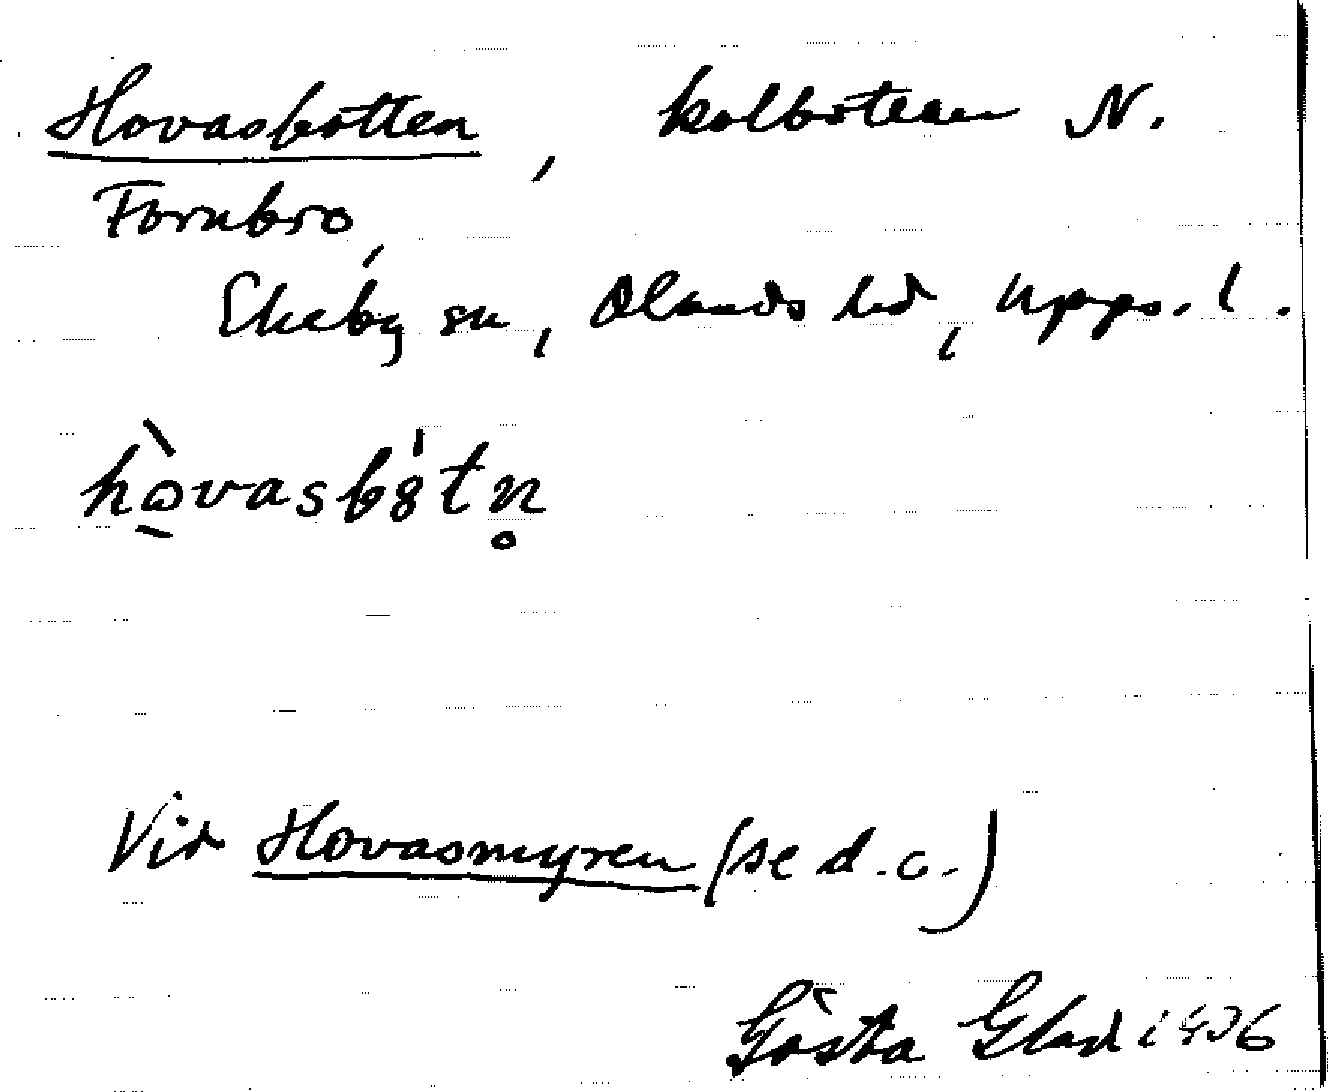 Hovasbotten, kolbotten N.
Fornbro,
Ekeby sn, Olands hd, Upps. l.
hòvasbåtn̥
Vid Hovasmyren (se d. o.)
Gösta Glad 1936